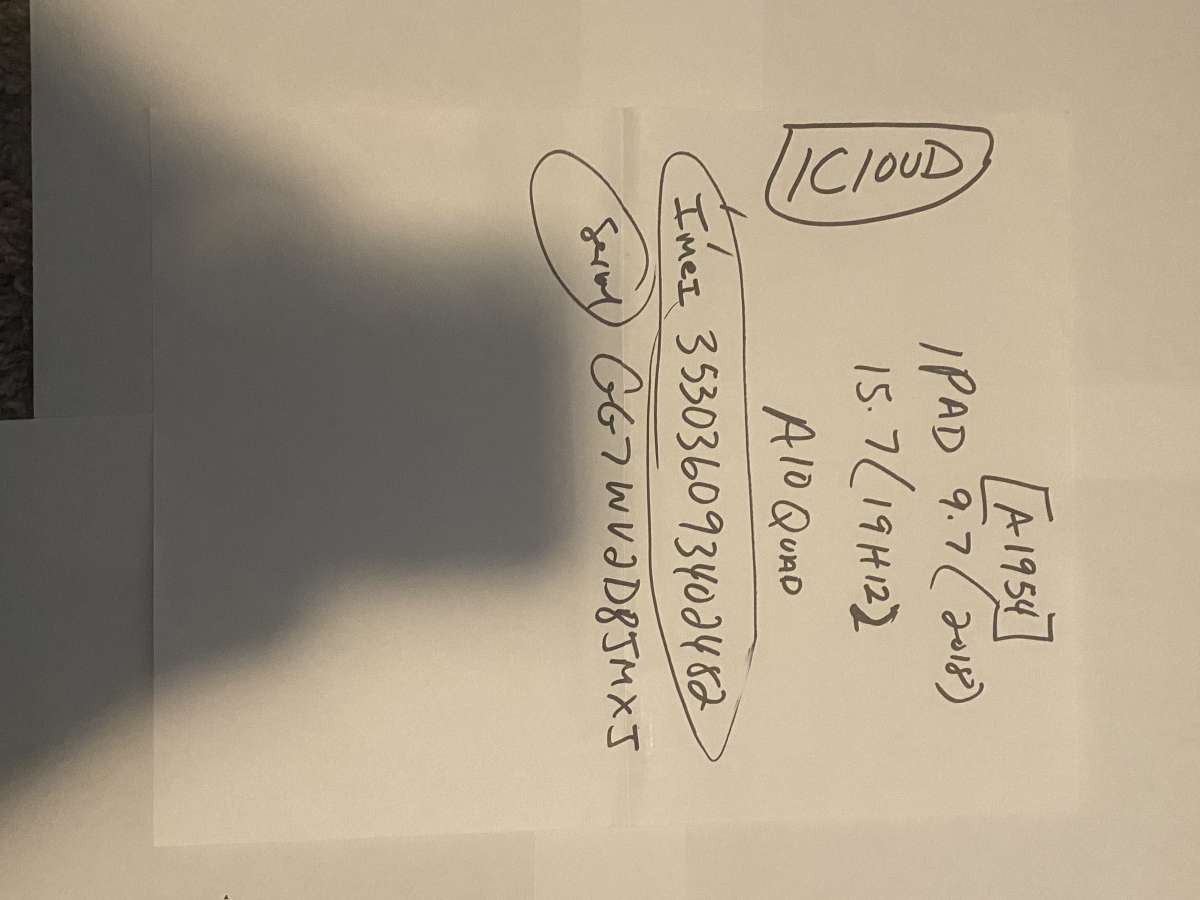 [A1954]
ICLOUD
IPAD 9.7 (2018)
15.7 (19H12)
A10 QUAD
IMEI 353036093402482
Serial GG7WV2D8JMXJ